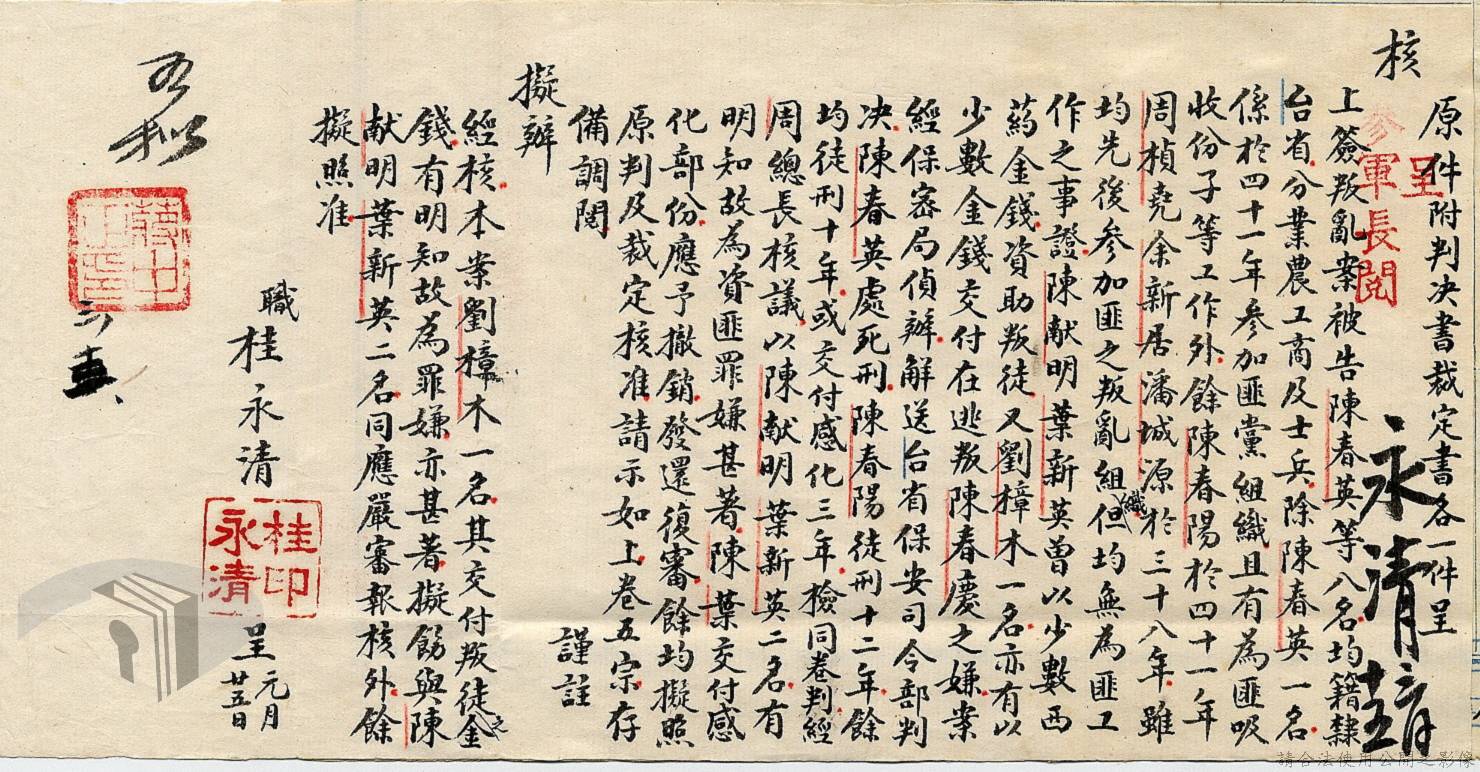 核
原件附判決書裁定書各一件呈
呈
參軍長閱
永清
上簽叛亂案被告陳春英等八名均籍隸
台省分業農工商及士兵除陳春英一名
係於四十一年參加匪黨組織且有為匪吸
收份子等工作外餘陳春陽於四十一年
周楨堯余新居潘城源於三十八年雖
均先後參加匪之叛亂組織但均無為匪工
作之事證陳献明葉新英曾以少數西
藥金錢資助叛徒又劉樟木一名亦有以
少數金錢交付在逃叛陳春慶之嫌案
經保密局偵辦解送台省保安司令部判
決陳春英處死刑陳春陽徒刑十二年餘
均徒刑十年或交付感化三年檢同卷判經
周總長核議以陳献明葉新英二名有
明知故為資匪罪嫌甚著陳葉交付感
化部份應予撤銷發還復審餘均擬照
原判及裁定核准請示如上卷五宗存
備調閱
謹註
擬辦
經核本案劉樟木一名其交付叛徒之金
錢有明知故為罪嫌亦甚著擬飭與陳
献明葉新英二名同應嚴審報核外餘
擬照准
職桂永清
桂永清印
呈
元月
廿五日
蔣中正印
請合法使用公開之影像